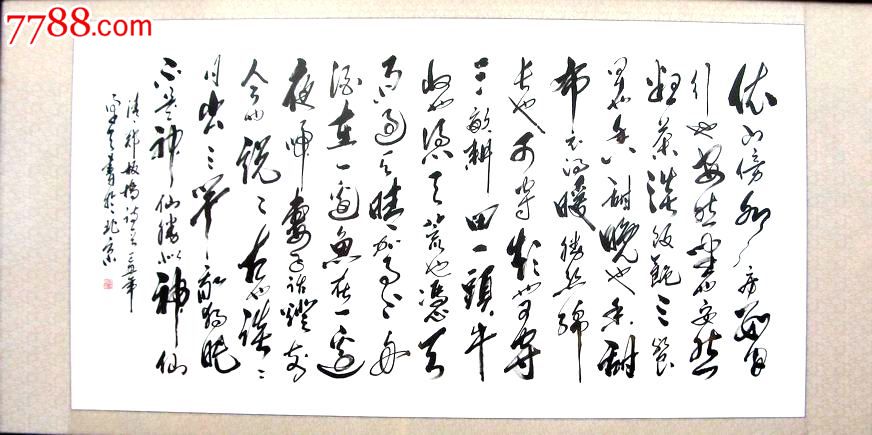 7788.com
依山傍水房數間
行也安然坐也安然
粗茶淡飯飽三餐
早也香甜晚也香甜
布衣得暖勝絲綿
長也可穿短也可穿
三畝耕田一頭牛
收也憑天荒也憑天
雨過天晴駕小舟
酒在一邊魚在一邊
夜歸妻子話燈前
今也說說古也談談
日出三竿我猶眠
不是神仙勝似神仙
清鄭板橋詩年
書於北京